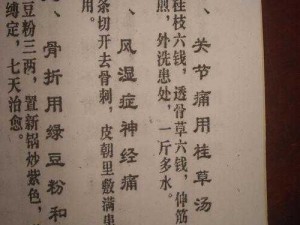 、关节痛用桂草汤
桂枝六钱，透骨草六钱，伸筋
煎，外洗患处，一斤多水。
、风湿症神经痛
条切开去骨刺，皮朝里敷满患
用。
、骨折用绿豆粉和
豆粉三两，置新锅炒紫色，
缚定，七天治愈。